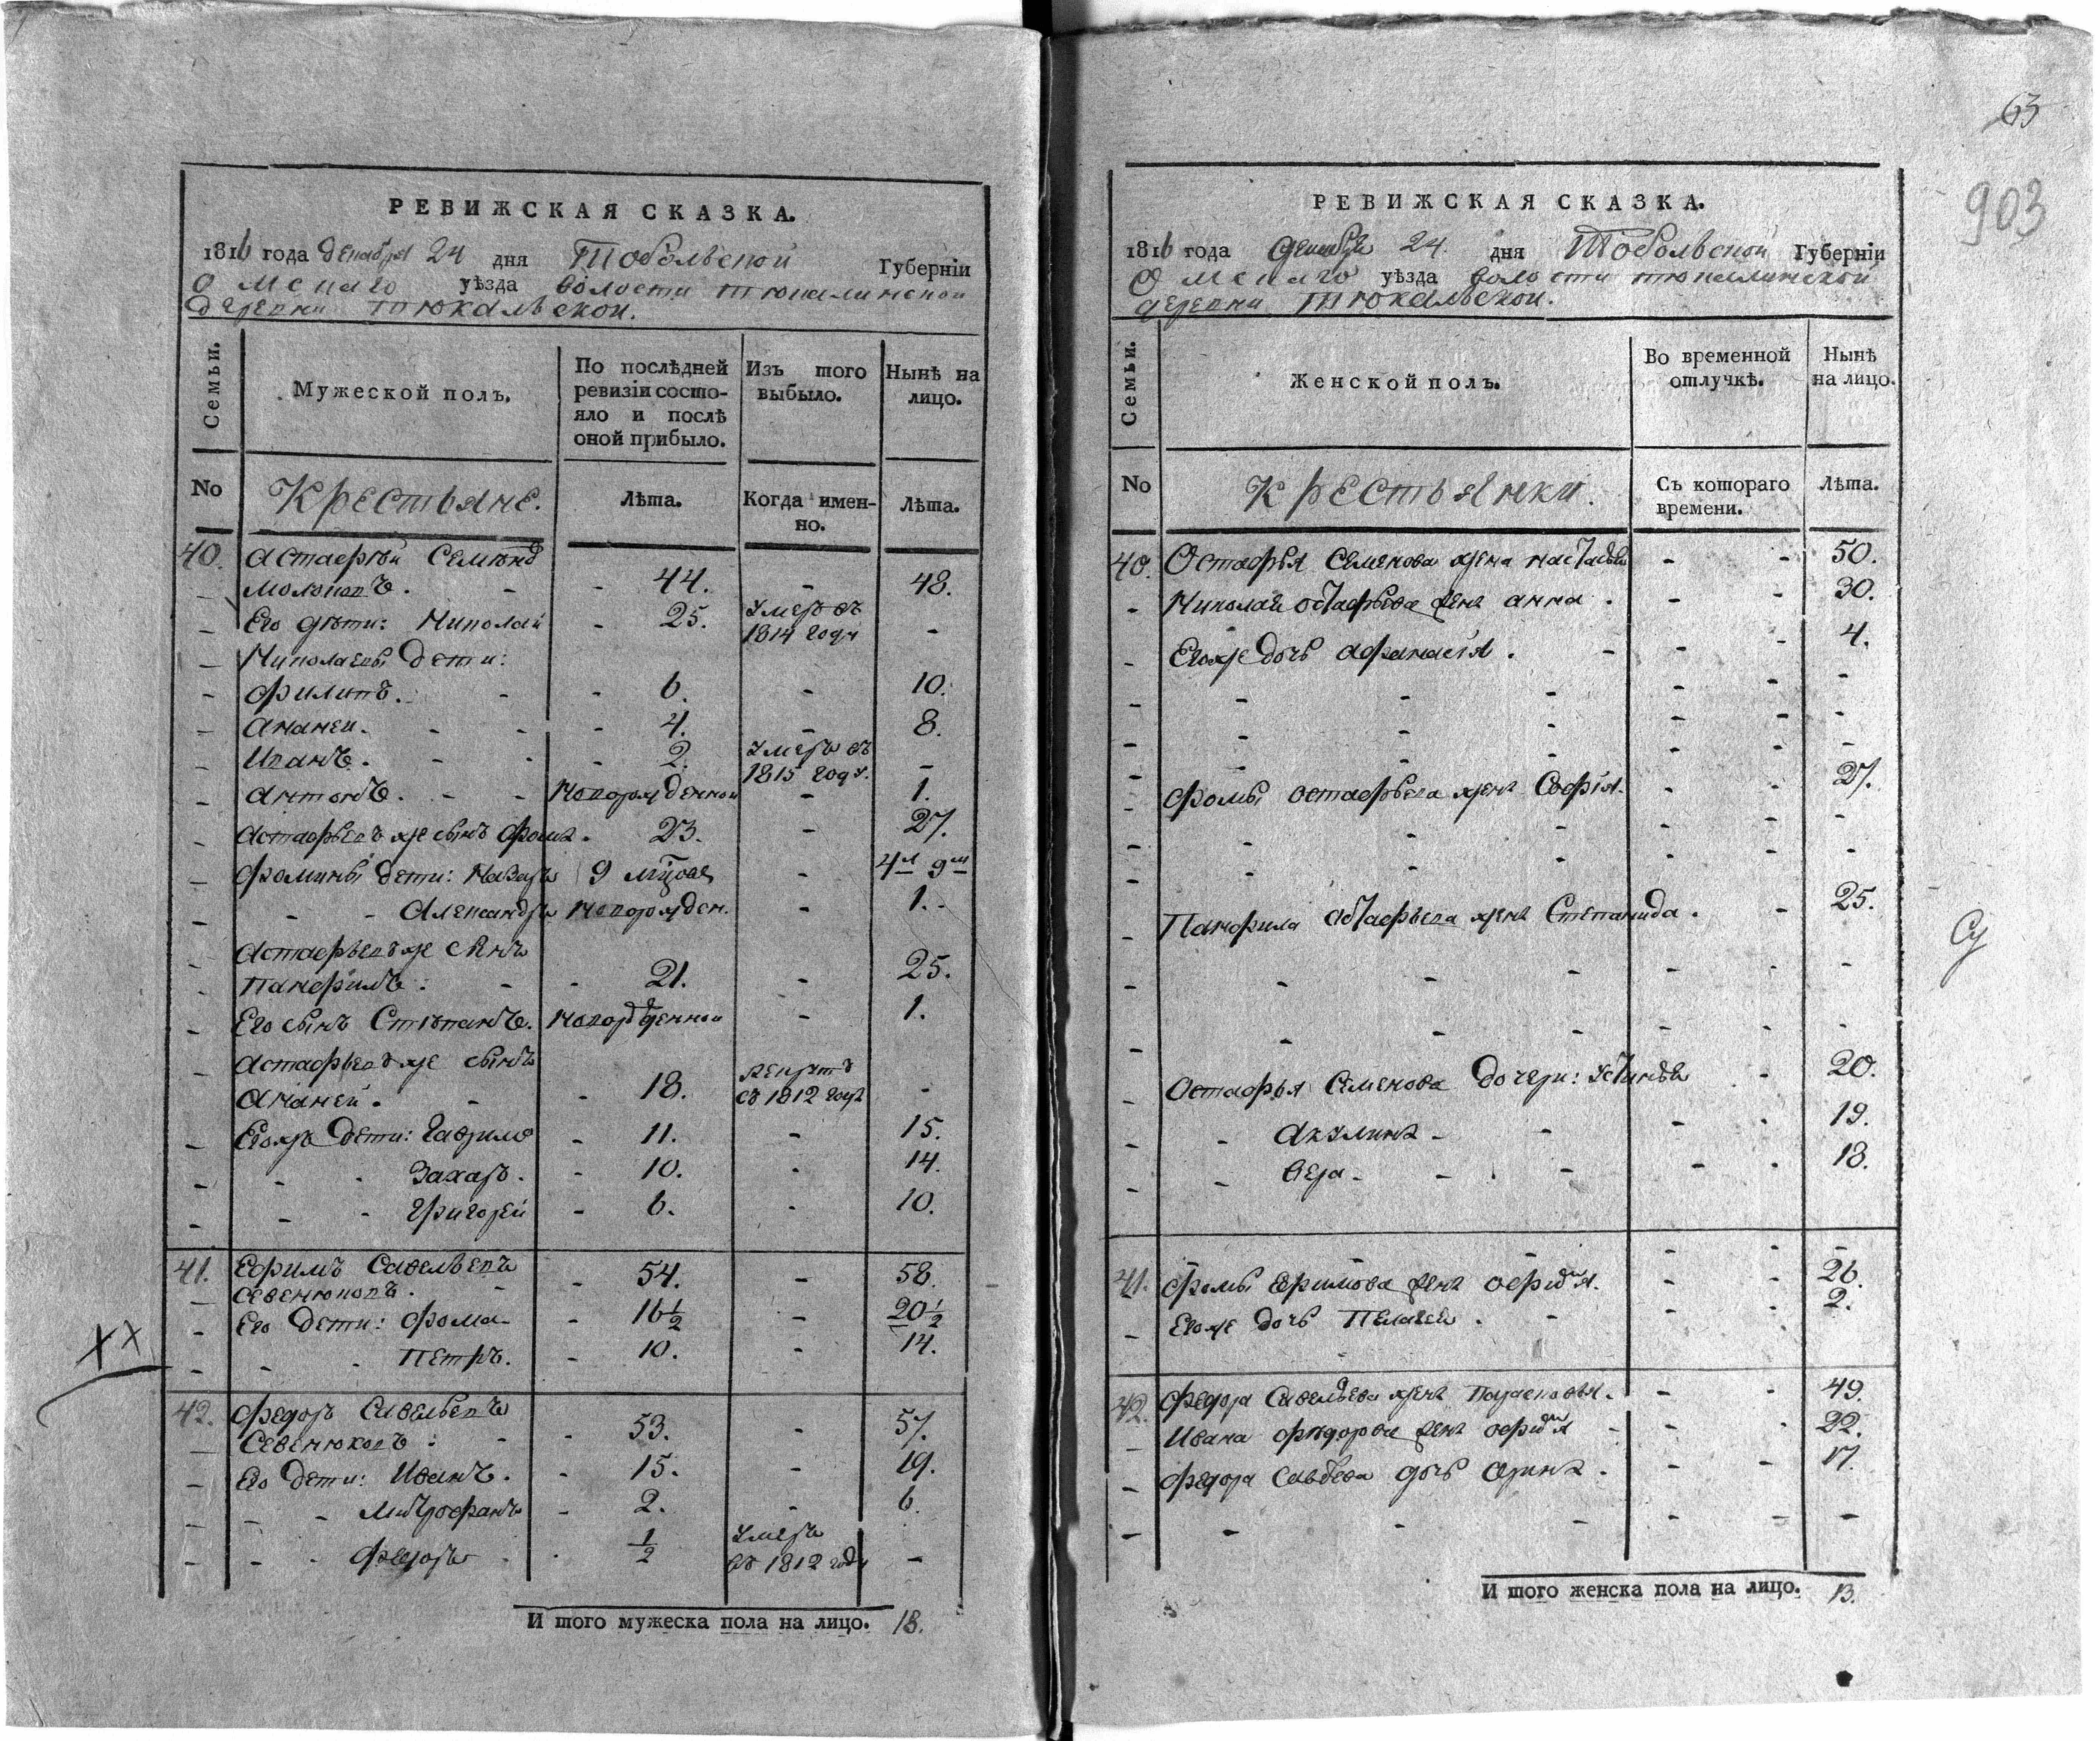 РЕВИЖСКАЯ СКАЗКА.
1816 года декабря 24 дня Тобольской Губерніи
Омскаго уѣзда волости тюкалинской
деревни тюкальской.
Семьи.
Мужеской полъ.
По послѣдней ревизіи состо-
яло и послѣ
оной прибыло.
Изъ того выбыло.
Нынѣ на лицо.
No
Крестьяне.
Лѣта.
Когда имен-
но.
Лѣта.
40. Астафѣй Семѣновъ
- 44. - 48.
Его дѣти: Николай - 25. Умеръ въ 1814 году -
Николаевы дети:
Филипъ. - - 6. - 10.
Ананеи. - - - 4. - 8.
Иванъ. - - - 2. Умеръ въ 1815 году. -
Антонъ. - - новорожденнои - 1.
Астафьевъ же сынъ Фома. 23. - 27.
Фомины дети: Назаръ 9 мцовъ - 4л 9м
- - Александръ новорожден. - 1. -
Астафьевъ же сынъ
Панфилъ: - - 21. - 25.
Его сынъ Степанъ. новорожденнои - 1.
Астафьевъ же сынъ
Ананеи. - - 18. рекрутъ въ 1812 году -
Егожъ дети: Гаврило - 11. - 15.
- - Захаръ. - 10. - 14.
- - Григореи - 6. - 10.
41. Ефимъ Савельевъ
Севенюковъ. - - 54. - 58.
Его дети: Фома - 16 1/2 - 20 1/2
- - Петръ. - 10. - 14.
XX
42. Федоръ Савельевъ
Севенюковъ: - - 53. - 57.
Его дети: Иванъ. - 15. - 19.
- - Митрофанъ - 2. - 6.
- - Федоръ - 1/2 Умеръ въ 1812 году -
И того мужеска пола на лицо. 18.
63
903
РЕВИЖСКАЯ СКАЗКА.
1816 года Декабря 24. дня Тобольской Губерніи
Омскаго уѣзда волости тюкалинской
деревни Тюкальской.
Семьи.
Женской полъ.
Во временной отлучкѣ.
Нынѣ на лицо.
No
Крестьянки.
Съ котораго времени.
Лѣта.
40. Остафья Семенова жена настасья - - 50.
- Николая остафьева жена анна. - - 30.
- Егоже дочь афанасія. - - - 4.
Фомы остафьева жена Софія. - - 27.
- Панфила астафьева жена Степанида. - 25.
- Остафья Семенова дочери: Устинья - 20.
- - Акулина - - - 19.
- - Вера - - - - 18.
41. Фомы Ефимова жена офимія. - - 26.
- Егоже дочь Пелагея. - - - 2.
42. Федора Савельева жена Парасковья. - - 49.
- Ивана федорова жена офимія - - - 22.
- Федора Савельева дочь Арина. - - 17.
И того женска пола на лицо. 13.